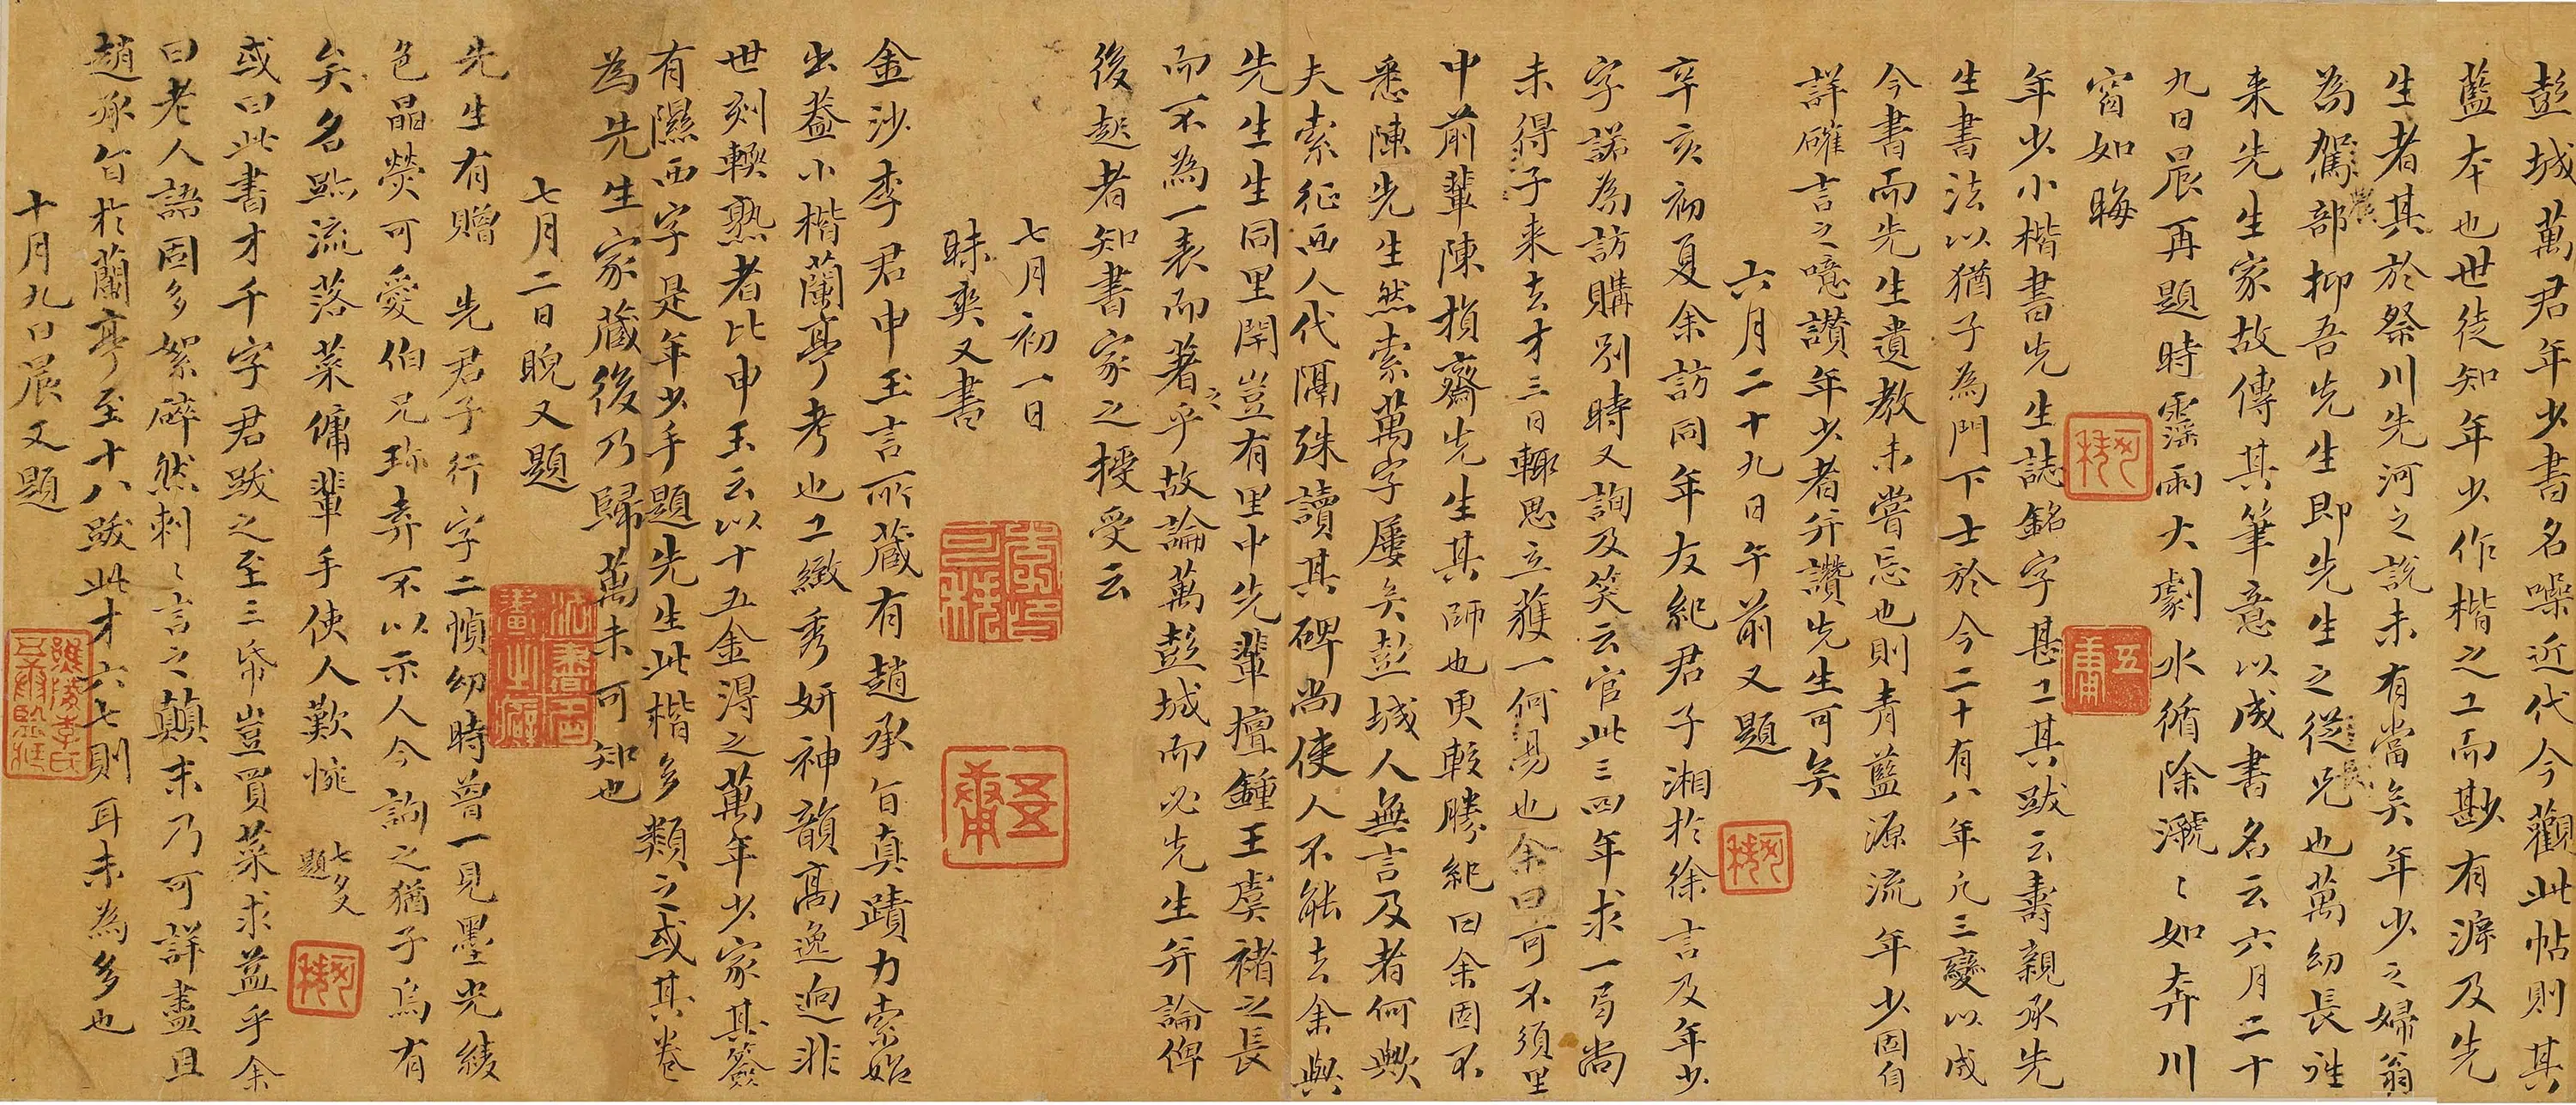 彭城萬君年少書名噪近代今觀此帖則其
藍本也世徒知年少作楷之工而尠有滹及先
生者其於祭川先河之說未有當矣年少之婦翁
為駕部抑吾先生即先生之從兄也萬幼長誰
来先生家故傳其筆意以成書名云六月二十
九日晨再題時霪雨大劇水循除㶁〻如奔川
窗如晦
年少小楷書先生誌銘字甚工其跋云壽親承先
生書法以猶子為門下士於今二十有八年凡三變以成
今書而先生遺教未嘗忘也則青藍源流年少固自
詳確言之噫讃年少者并讚先生可矣
六月二十九日午前又題
辛亥初夏余訪同年友紀君子湘於徐言及年少
字諾為訪購別時又詢及笑云官此三四年求一字尚
未得子来去才三日輒思立獲一何易也余曰可不須里
中前輩陳損齋先生其師也更較勝紀曰余固不
悉陳先生然索萬字屢矣彭城人無言及者何歟
夫索征西人代隔殊讀其碑尚使人不能去余與
先生生同里閈豈有里中先輩擅鍾王虞褚之長
而不為一表而著之乎故論萬彭城而必先生并論俾
後起者知書家之授受云
七月初一日
昧爽又書
金沙李君申玉言所藏有趙承旨真蹟力索始
出葢小楷蘭亭考也工緻秀妍神韻高逸迥非
世刻輭熟者比申玉云以十五金得之萬年少家其簽
有隰西字是年少手題先生此楷多類之或其卷
為先生家藏後乃歸萬未可知也
七月二日晚又題
先生有贈 先君子行字二幀幼時曾一見墨光綾
色晶熒可愛伯兄珎弆不以示人今詢之猶子烏有
矣名蹟流落菜傭輩手使人歎惋 七夕又題
或曰此書才千字君跋之至三帋豈買菜求益乎余
曰老人語固多絮碎然刺〻言之顛末乃可詳盡且
趙承旨於蘭亭至十八跋此才六七則耳未為多也
十月九日晨又題